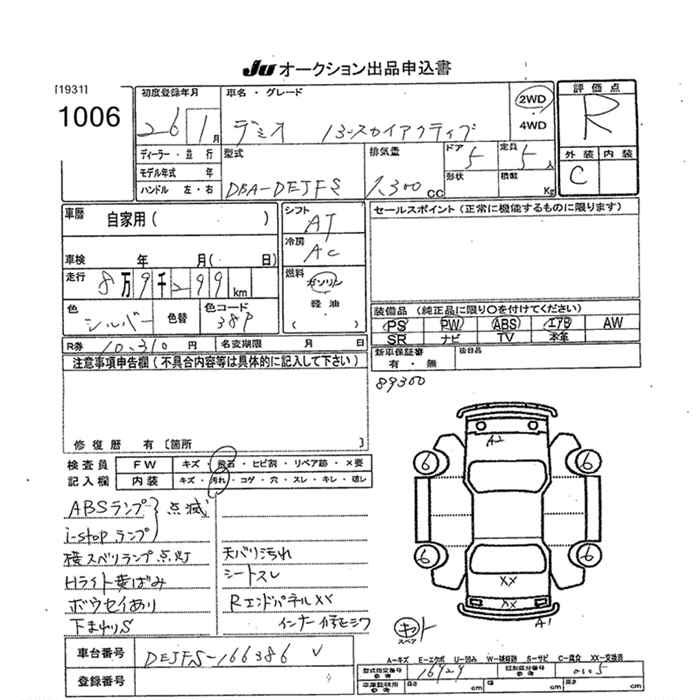 JU オークション出品申込書
[1931]
1006
初度登録年月
26 1月
車名・グレード
デミオ 13-スカイアクティブ
2WD
4WD
評価点
R
外装 内装
C
ディーラー・並行
モデル年式 年
ハンドル 左・右
型式
DBA-DEJFS
排気量
1,300 CC
ドア 5
形状
定員 5 人
積載 Kg
車歴 自家用( )
車検 年 月( 日)
走行 8万9千299km
色 シルバー 色替
色コード 38P
シフト AT
冷房 AC
燃料
ガソリン
軽油
( )
セールスポイント(正常に機能するものに限ります)
装備品(純正品に限り〇を付けてください)
PS PW ABS エアB AW
SR ナビ TV 本革
R券 10,310 円 名変期限 月 日
新車保証書 有・無
後日品
89300
注意事項申告欄(不具合内容等は具体的に記入して下さい)
修復歴 有[箇所 ]
検査員 FW キズ・飛石・ヒビ割・リペア跡・×要
記入欄 内装 キズ・汚れ・コゲ・穴・スレ・キレ・破レ
ABSランプ 点滅
i-stopランプ
横スベリランプ点灯
Hライト黄ばみ
ボウセイあり
下まわりS
天バリ汚れ
シートスレ
RエンドパネルXX
A2
6 6
6 6
XX
XX
A1
キット
スペア
A-キズ E-エクボ U-凹み W-補修跡 S-サビ C-腐食 XX-交換済
車台番号 DEJFS-166386
登録番号
型式指定番号 参考 16929
類別区分番号 参考
車庫証明用 参考 長さ cm 幅 cm 高さ cm